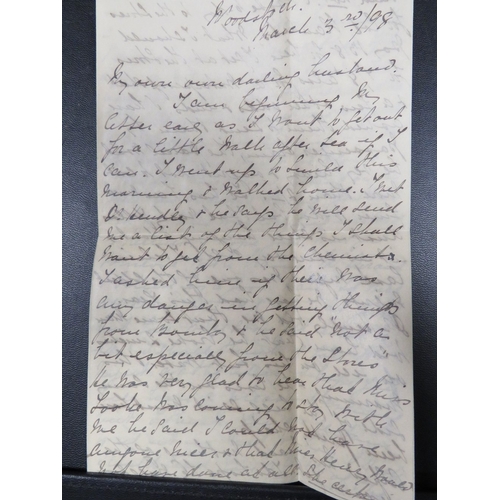 March 3rd/98
My own own darling husband.
I am beginning my
letter early as I want to get out
for a little walk after tea if I
can. I went up to this
morning & walked home. I met
Dr. & he says he will send
me a list of the things I shall
want to get from the Chemists.
I asked him if there was
any danger in getting things
from Bombay & he said "not a
bit especially from the Stores"
He was very glad to hear that Miss
Locke was coming to stay with
me he said I could not have
anyone nicer & that Mrs Henry
not have done at all. She